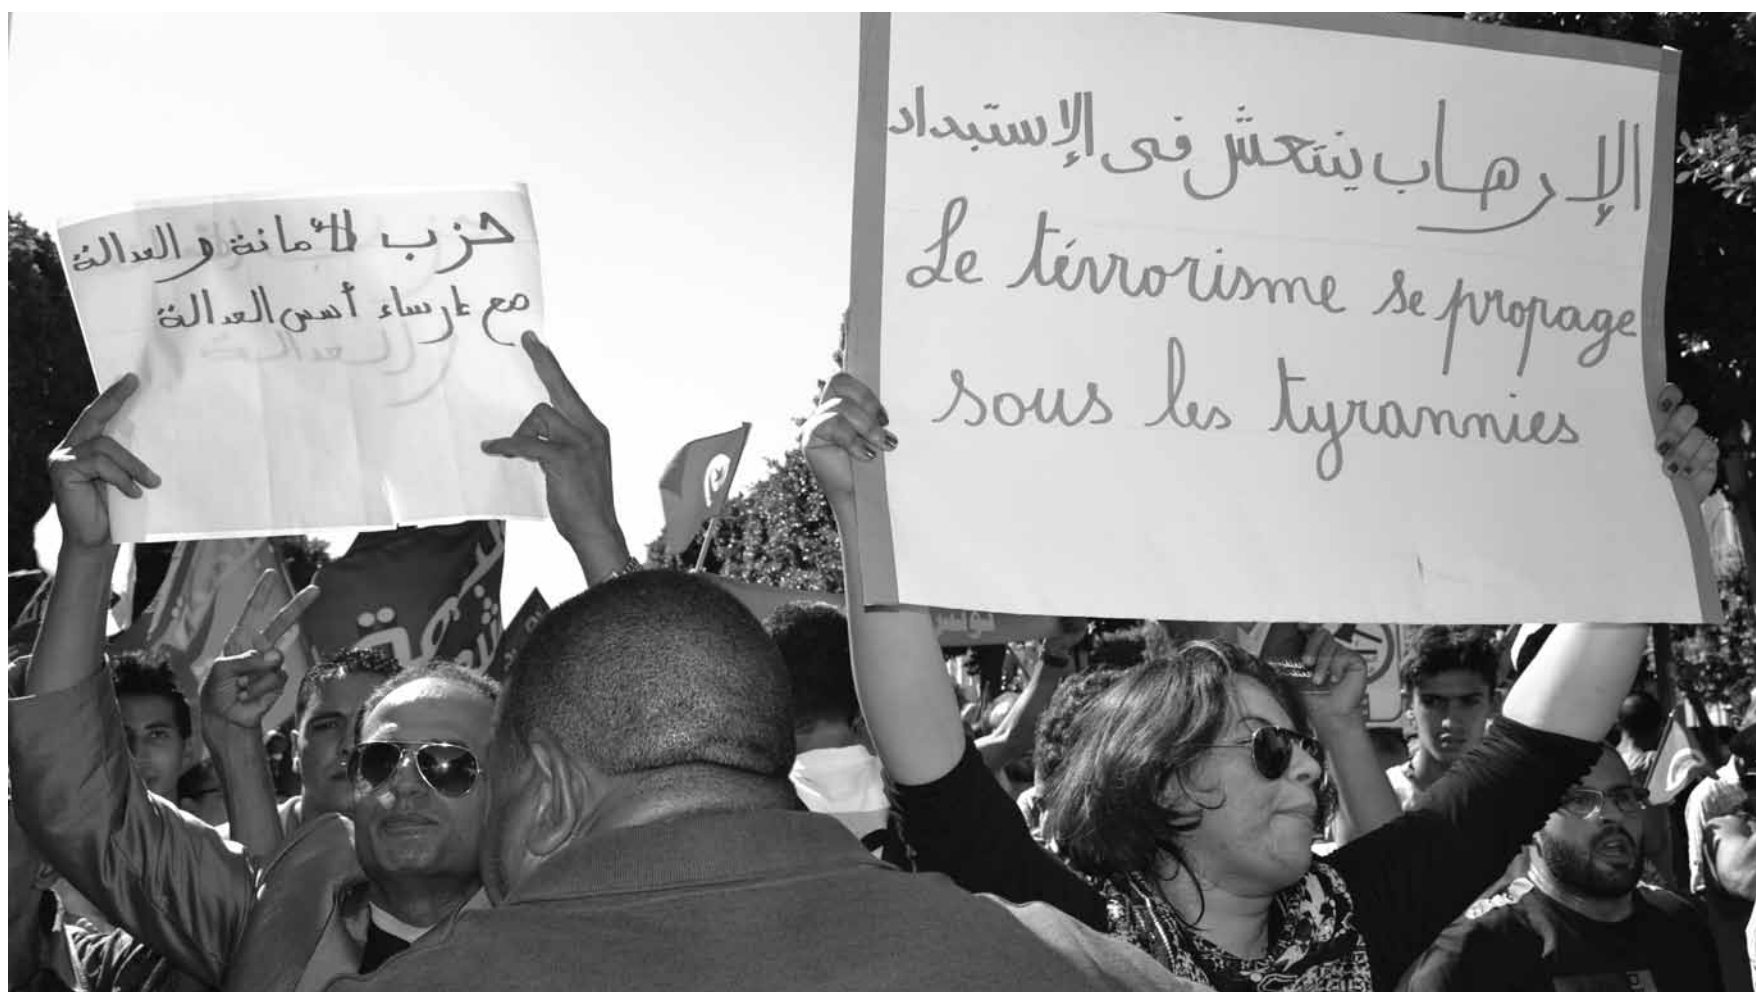 حزب الأمانة والعدالة
مع إرساء أسس العدالة
الإرهاب ينتعش في الإستبداد
Le térrorisme se propage
sous les tyrannies